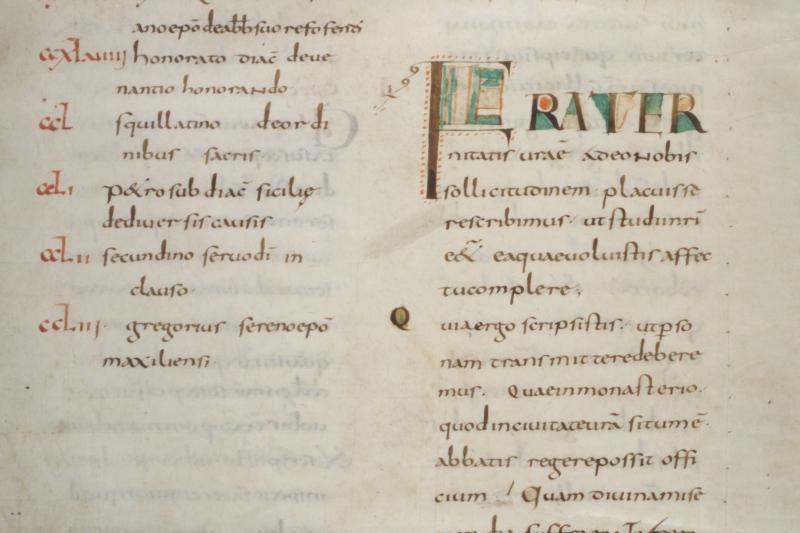 anoepō deabb suo refosensi
ccxlviiii honorato diac̄ deve
nantio honorando
ccl squillatino deordi
nibus sacris.
ccli petro sub diac̄ sicilię
dediversis causis
cclii secundino servo dī in
clauso.
ccliii. gregorius serenoepō
maxiliensi
FRATER
nitatis vraē adeonobis
sollicitudinem placuisse
rescribimus. ut
eaquaevoluistis affec
tucomplere;
Quiaergo scripsistis. utpso
nam transmitteredebere
mus. Quaeinmonasterio.
quodincivitatevrā situmē.
abbatis regerepossit offi
cium Quam divinamise